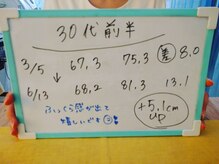 30代前半
3/5 67.3 75.3 差 8.0
↓
6/13 68.2 81.3 13.1
ふっくら感が出て
嬉しいです
+5.1cm
UP